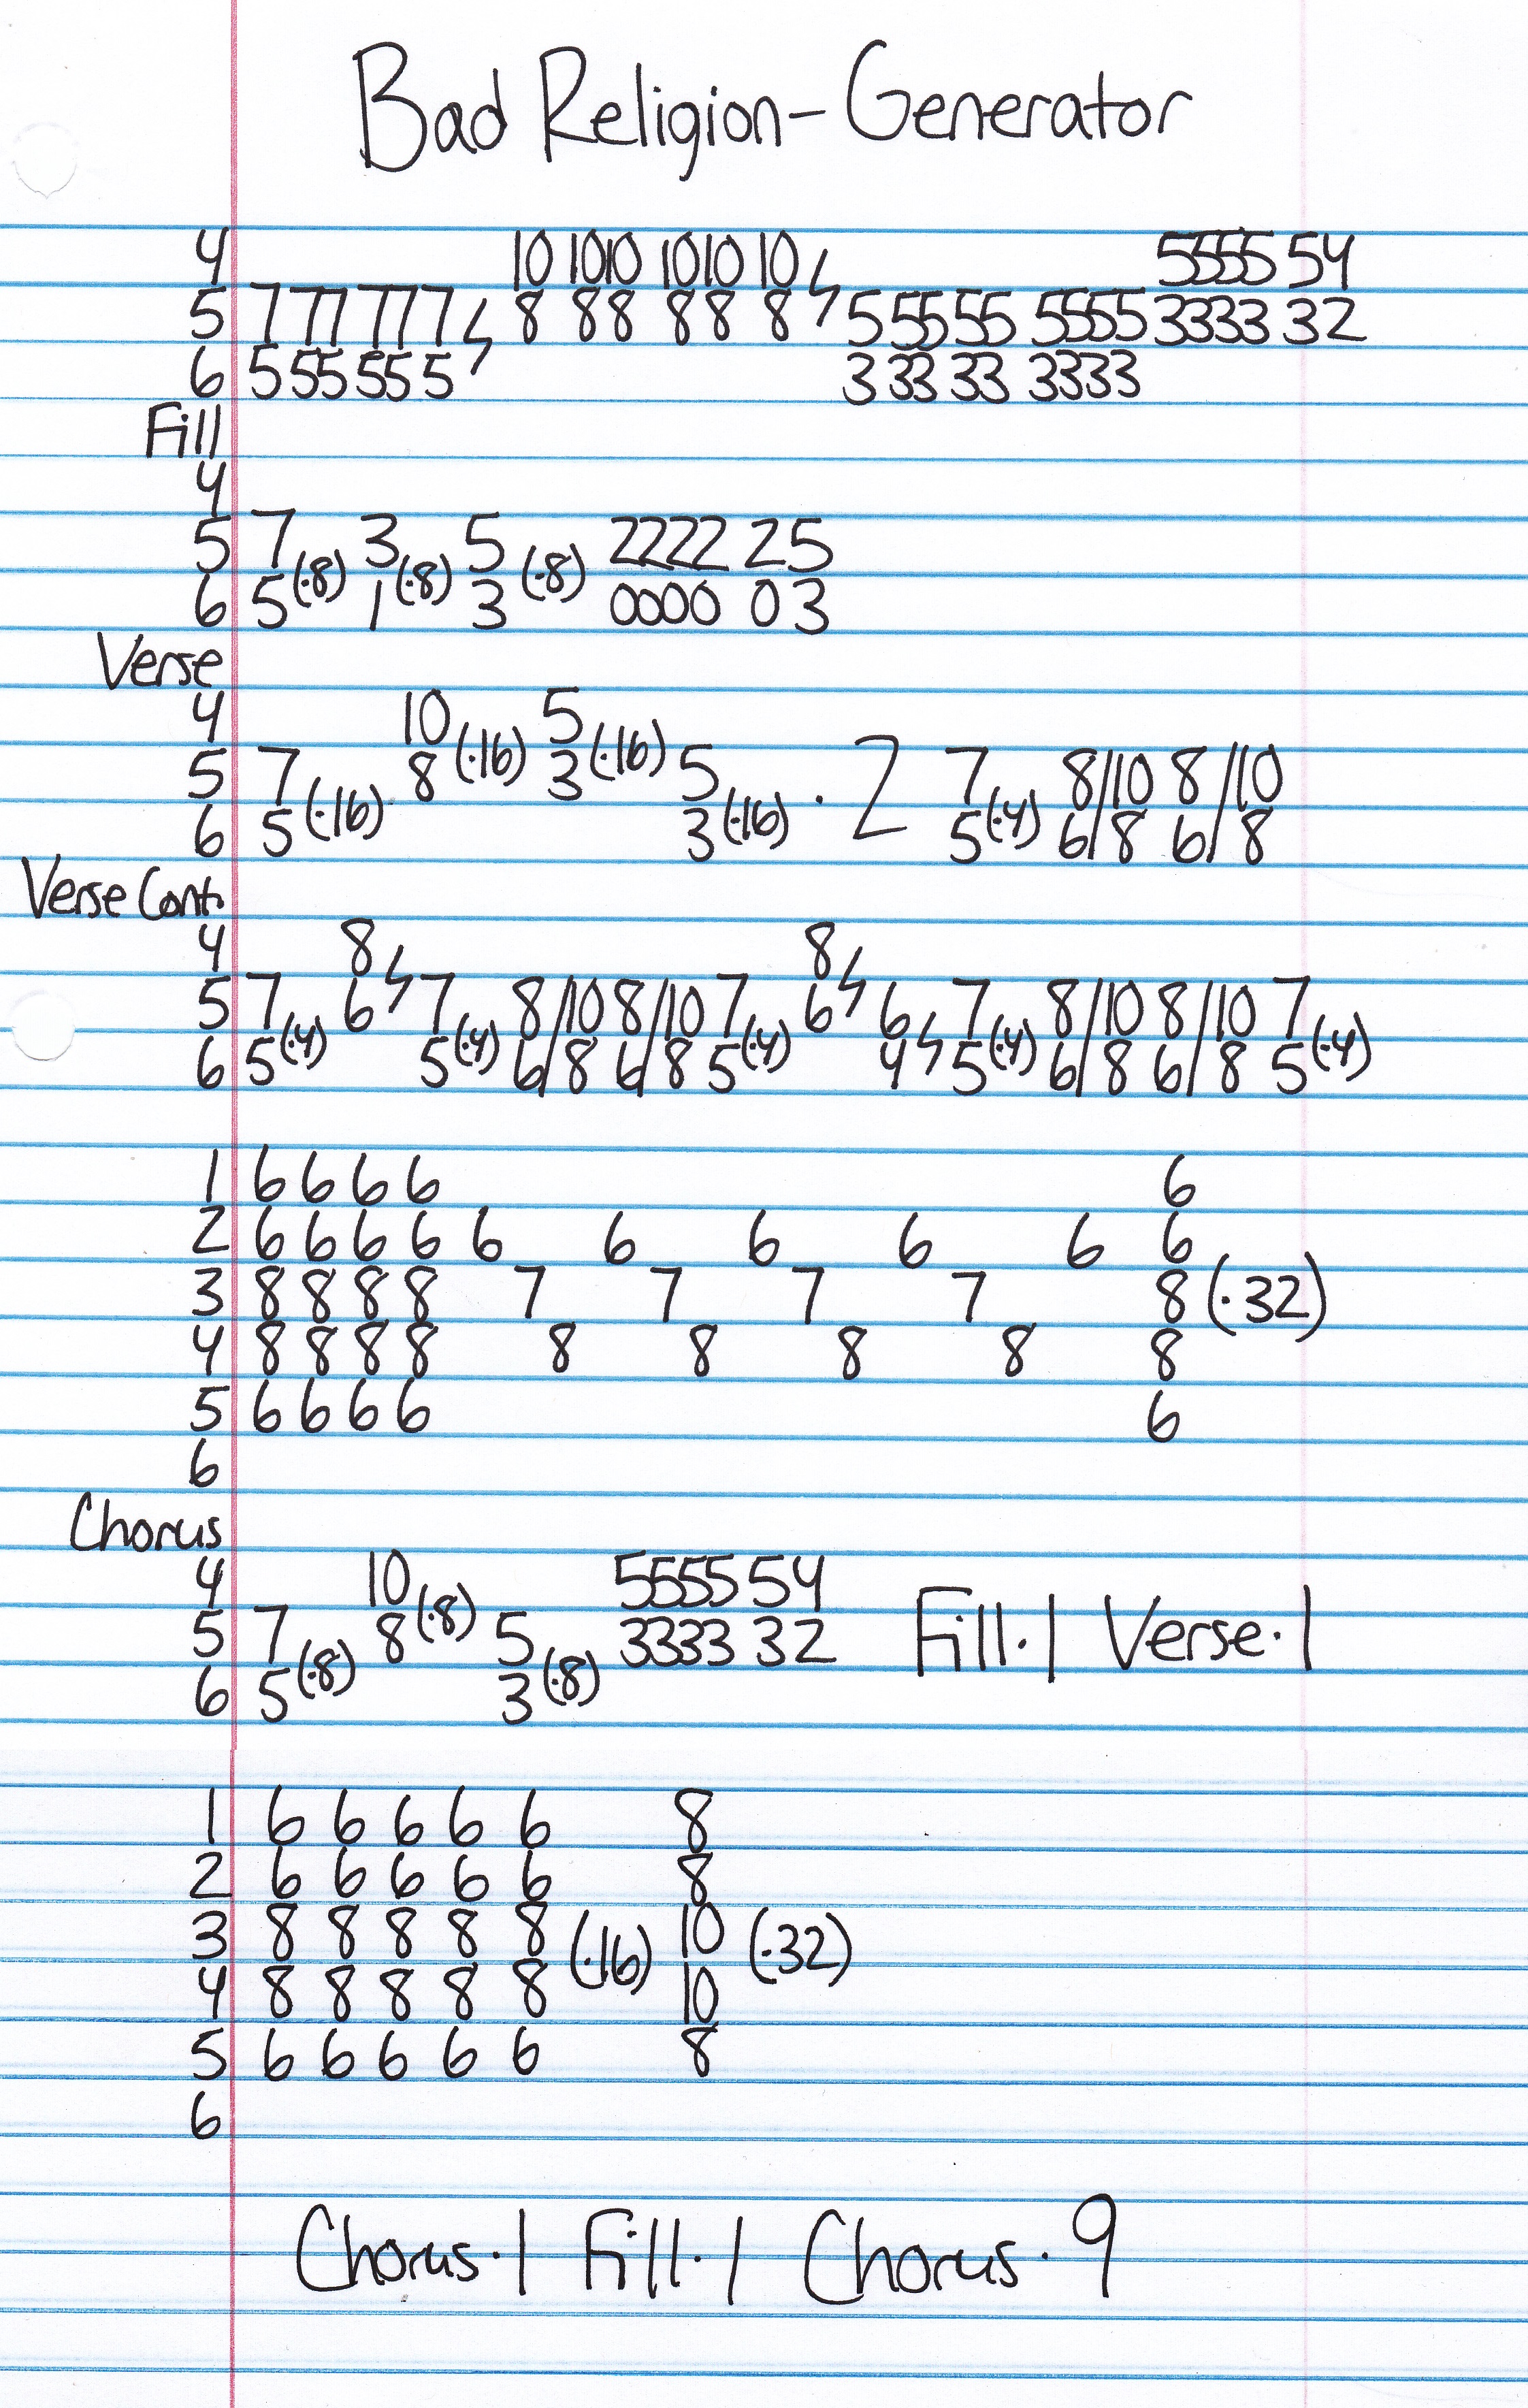 Bad Religion-Generator
4 10 1010 1010 10 5555 54
5 7 77 77 7 8 88 88 8 5 55 55 5555 3333 32
6 5 55 55 5 3 33 33 3333
Fill
4
5 7(·8) 3(·8) 5(·8) 2222 25
6 5 1 3 0000 03
Verse
4 10 5
5 7 8(·16) 3(·16) 5 ·2 7 8/10 8/10
6 5(·16) 3(·16) 5(·4) 6/8 6/8
Verse Cont.
4 8 8
5 7 6 7 8/10 8/10 7 6 6 7 8/10 8/10 7
6 5(·4) 5(·4) 6/8 6/8 5(·4) 4 5(·4) 6/8 6/8 5(·4)
1 6 6 6 6 6
2 6 6 6 6 6 6 6 6 6 6
3 8 8 8 8 7 7 7 7 8(·32)
4 8 8 8 8 8 8 8 8 8
5 6 6 6 6 6
6
Chorus
4 10(·8) 5555 54
5 7 8 5 3333 32 Fill·1 Verse·1
6 5(·8) 3(·8)
1 6 6 6 6 6 8
2 6 6 6 6 6 8
3 8 8 8 8 8 (·16) 10 (·32)
4 8 8 8 8 8 10
5 6 6 6 6 6 8
6
Chorus·1 Fill·1 Chorus·9